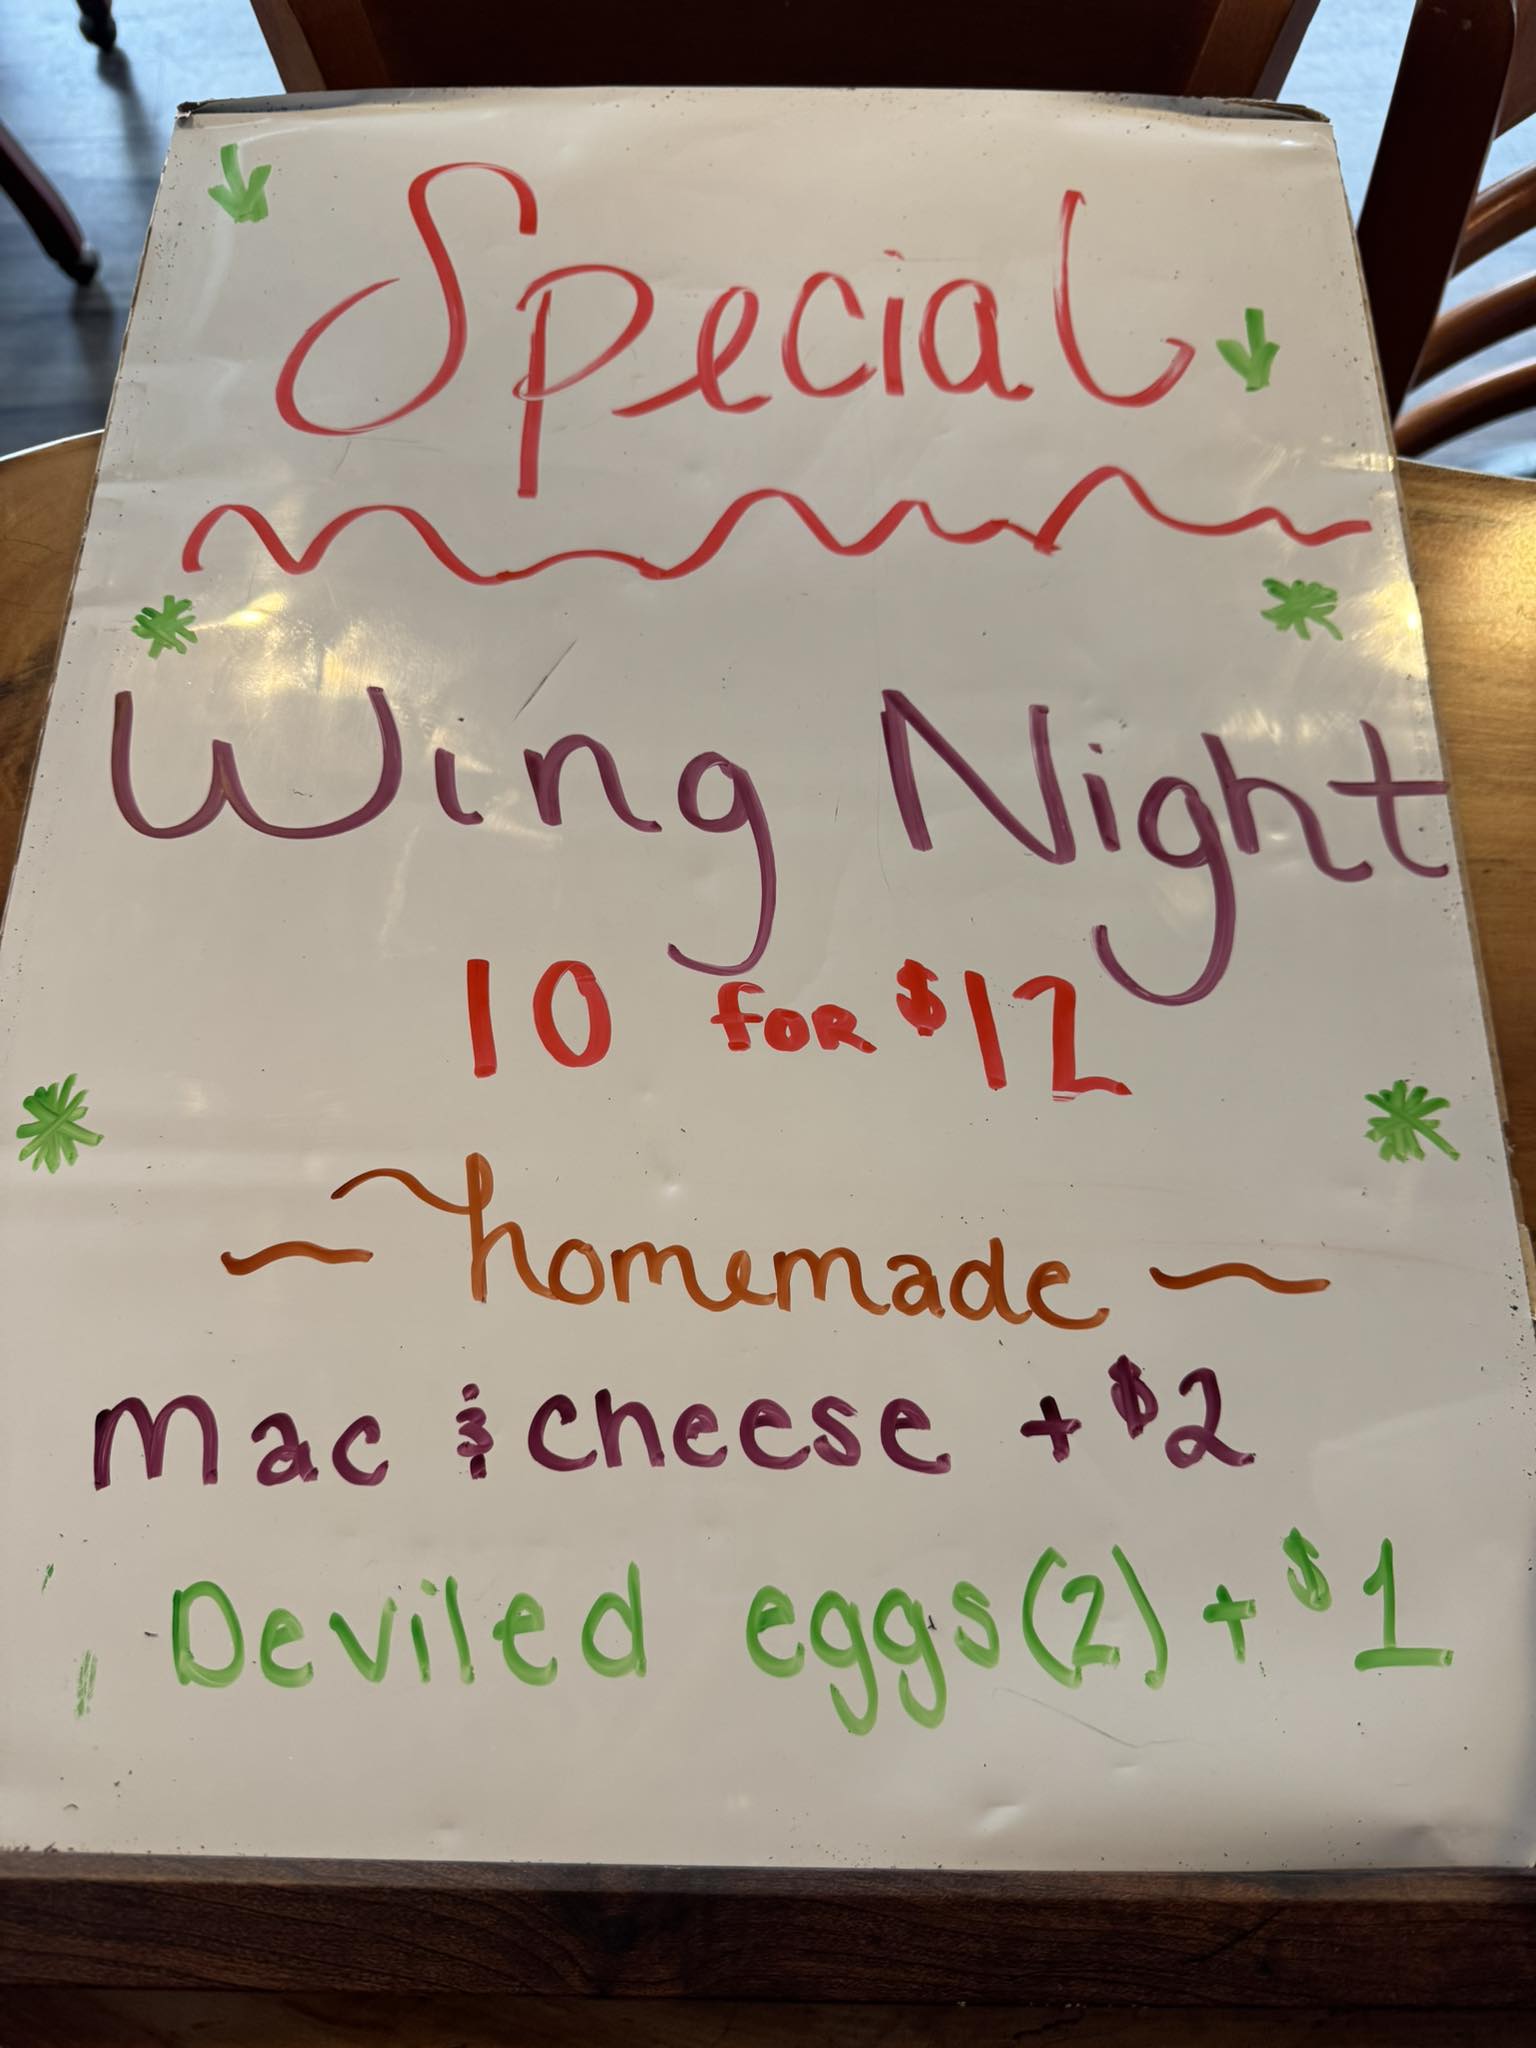 Special
Wing Night
10 for $12
~ homemade ~
Mac & cheese + $2
Deviled eggs (2) + $1